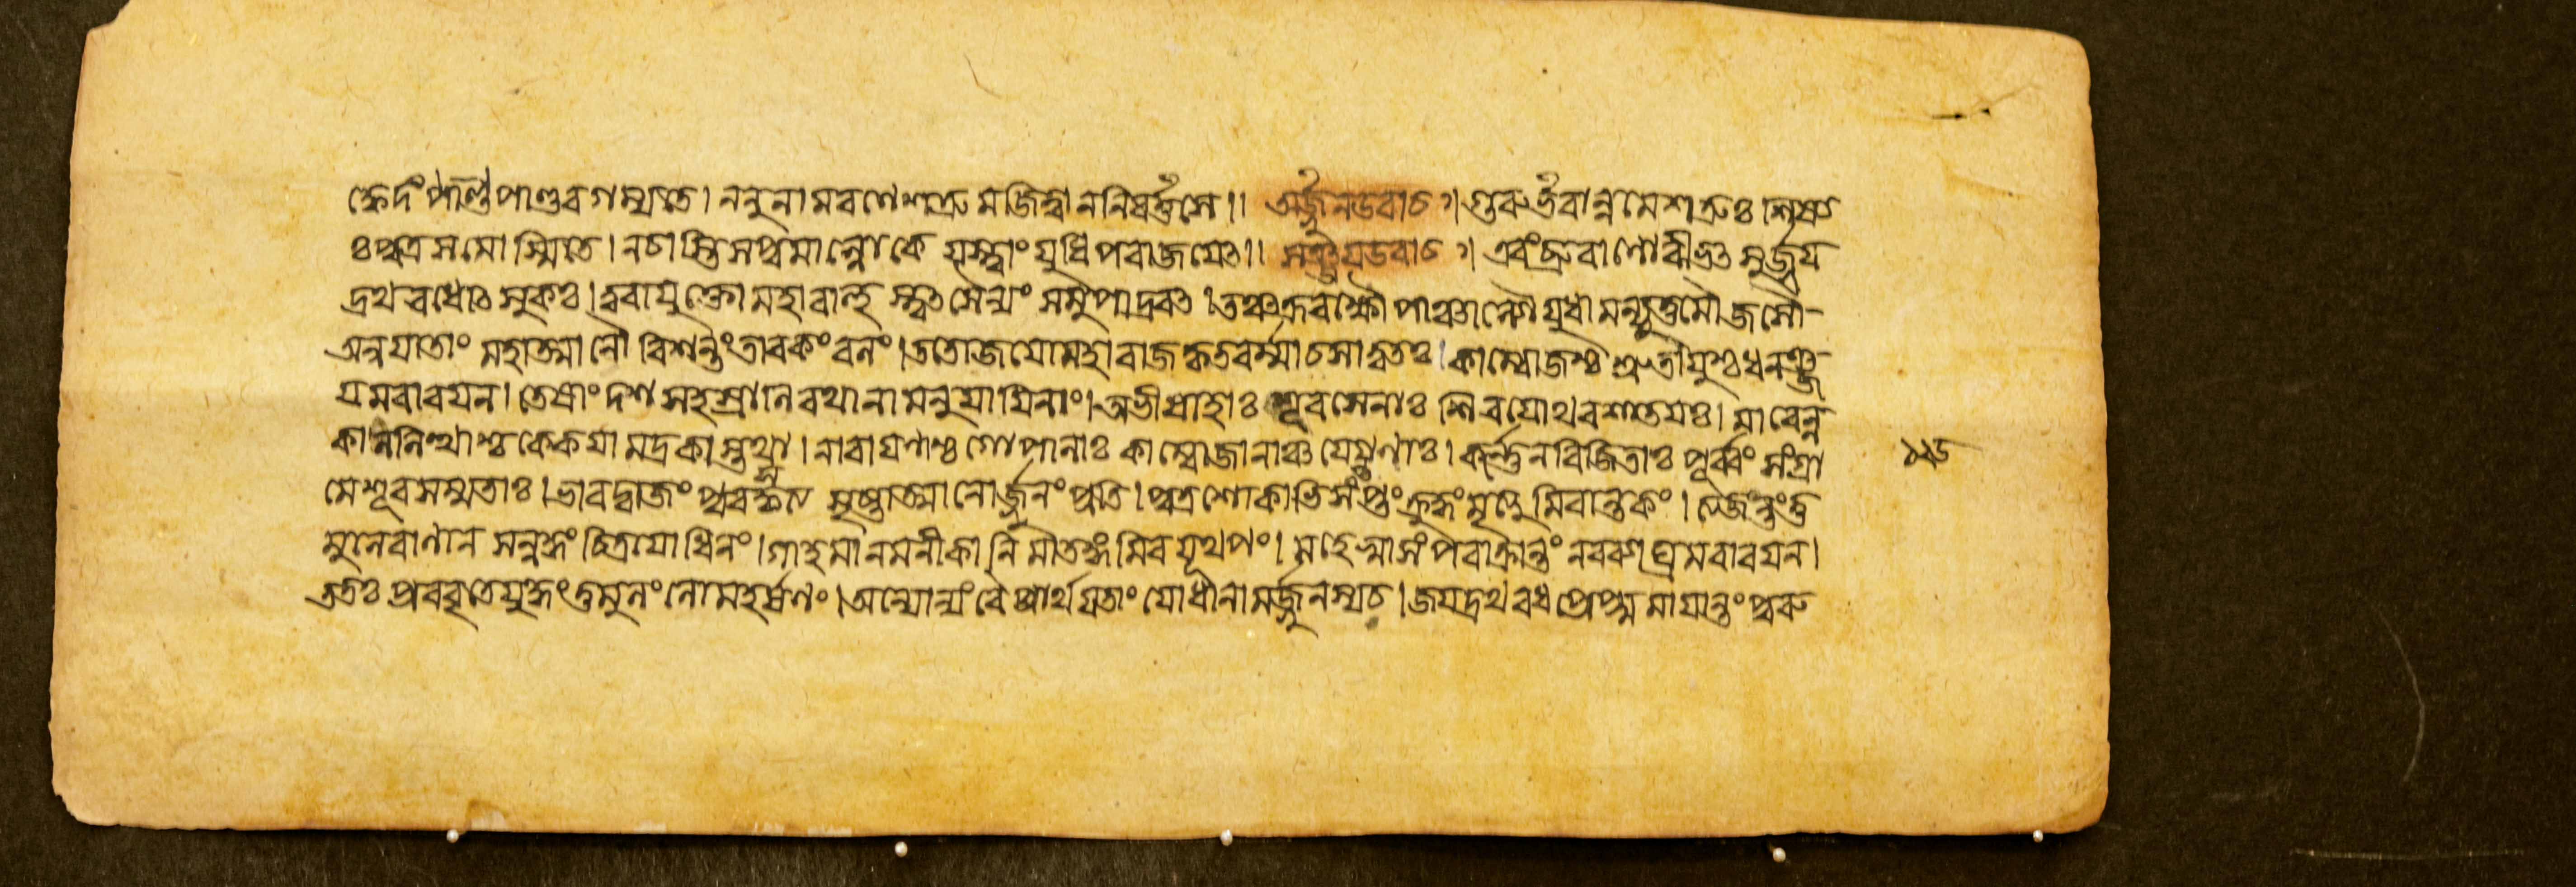 ক্বেদং পাণ্ডব গম্যতে। ননু নাম রণে শত্রুমজিত্বা ন নিবর্ত্তসে।। অর্জ্জুন উবাচ। গুরুর্ভবান্নমে শত্রুঃ শিষ্য
ঃ পুত্রসমোস্মিতে। নচাস্তি সপুমাল্লোকে যস্ত্বাং যুধি পরাজয়েৎ।। সঞ্জয় উবাচ। এবং ব্রুবাণো বীভৎসুর্জ্জয়
দ্রথবধোৎসুকঃ। ত্বরাযুক্তো মহাবাহুস্ত্বৎসৈন্যং সমুপাদ্রবৎ। তঞ্চক্ররক্ষৌ পাঞ্চাল্যৌ যুধামন্যূত্তমৌজসৌ
অন্বয়াতাং মহাত্মানৌ বিশন্তং তাবকং বলং। ততো জয়ো মহারাজ কৃতবর্ম্মা চ সাত্বতঃ। কাম্বোজশ্চ শ্রুতায়ুশ্চ ধনঞ্জ
য়মবারয়ন। তেষাং দশসহস্রানি রথানামনুয়ায়িনাং। অভীষাহাঃ শূরসেনাঃ শিবয়োথ বশাতয়ঃ। মাবেল্ল
কা ললিত্থাশ্চ কেকয়া মদ্রকাস্তথা। নারায়ণাশ্চ গোপালাঃ কাম্বোজানাঞ্চ যে গণাঃ। কর্ণ্ণেন বিজিতাঃ পূর্ব্বং সংগ্রা ১১৬
মে শূরসম্মতাঃ। ভারদ্বাজং পুরস্কৃত্য হৃষ্টাত্মানোর্জ্জুনং প্রতি। পুত্রশোকাভিসংতপ্তং ক্রুদ্ধং মৃত্যুমিবান্তকং। ত্যজন্তং তু
মুলে প্রাণান সন্নদ্ধং চিত্রযোধিনং। গাহমানমনীকানি মাতঙ্গমিব যূথপং। মহেষ্বাসং পরাক্রান্তং নরব্যাঘ্রমবারয়ন।
ততঃ প্রববৃতে যুদ্ধং তুমুলং লোমহর্ষণং। অন্যোন্যং বৈ প্রার্থয়তাং যোধানামর্জ্জুনস্য চ। জয়দ্রথবধপ্রেপ্সুমায়ান্তং পুরু